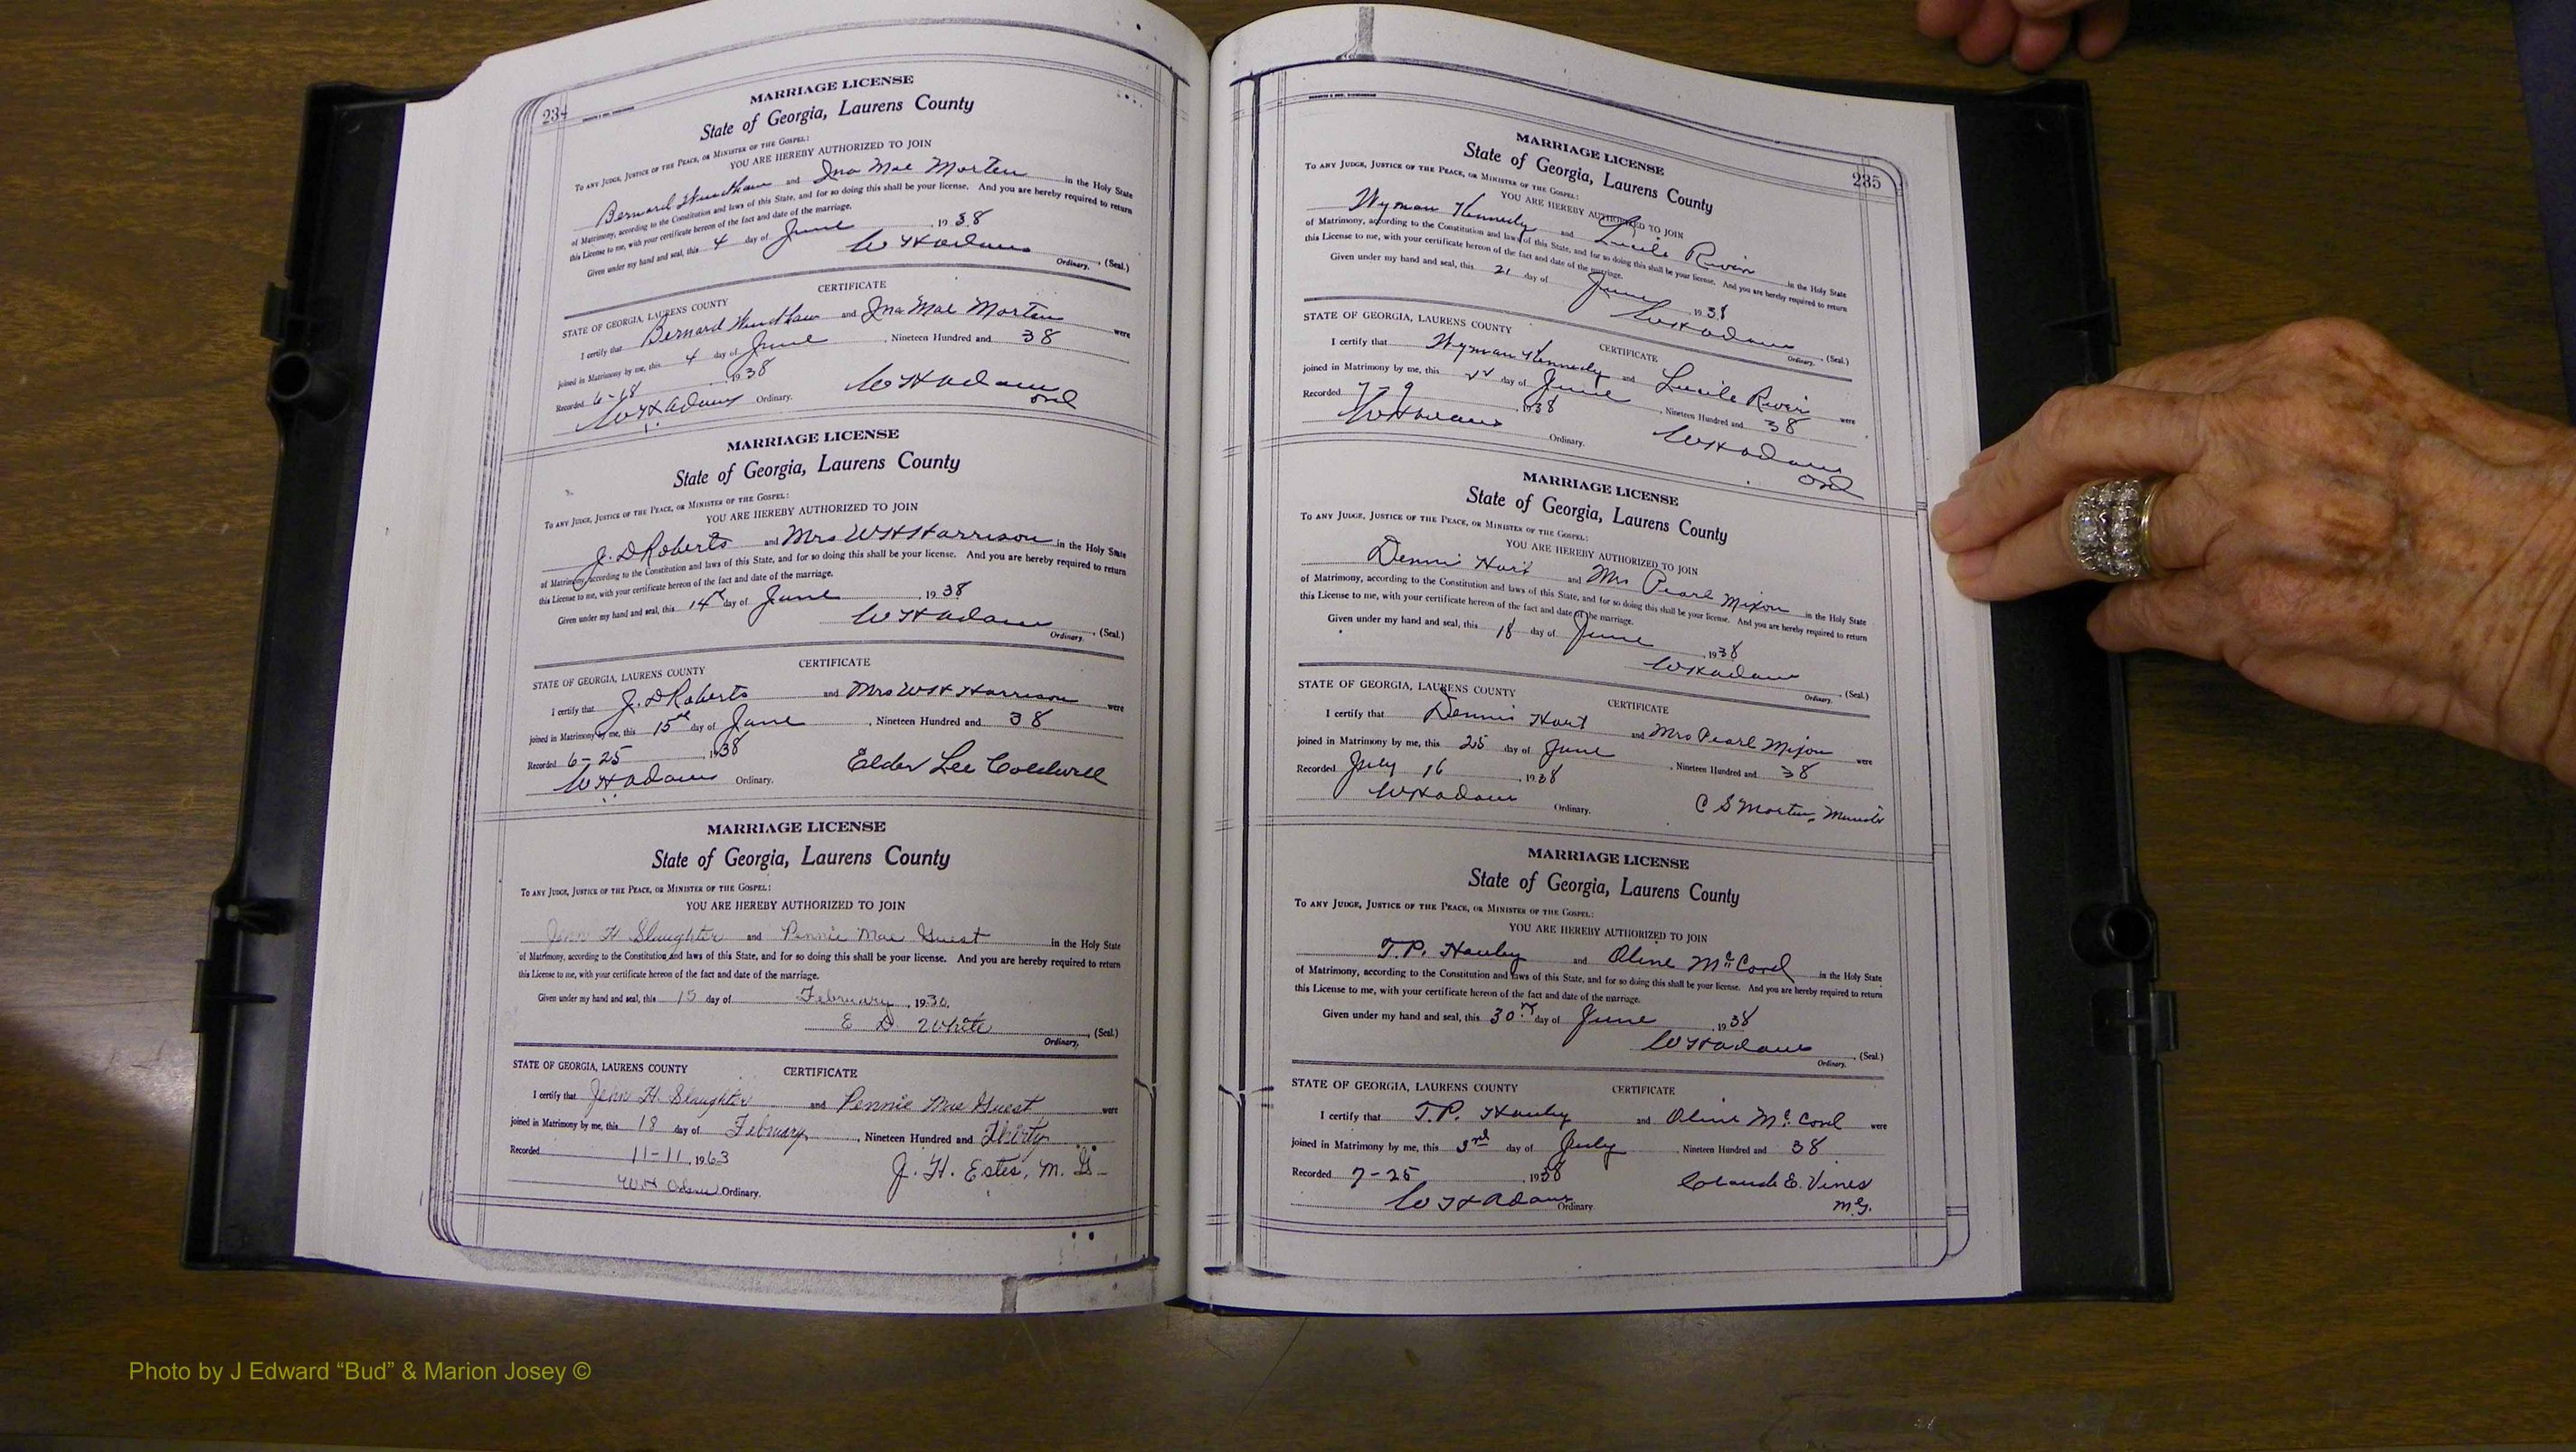 234
MARRIAGE LICENSE
State of Georgia, Laurens County
To any Judge, Justice of the Peace, or Minister of the Gospel:
YOU ARE HEREBY AUTHORIZED TO JOIN
Bernard Windham and Ina Mae Morten in the Holy State
of Matrimony, according to the Constitution and laws of this State, and for so doing this shall be your license. And you are hereby required to return
this License to me, with your certificate hereon of the fact and date of the marriage.
Given under my hand and seal, this 4 day of June, 1938
W H Adams, (Seal.)
Ordinary.
CERTIFICATE
STATE OF GEORGIA, LAURENS COUNTY
I certify that Bernard Windham and Ina Mae Morten were
joined in Matrimony by me, this 4 day of June, Nineteen Hundred and 38
Recorded 6-18 1938
W H Adams Ordinary. W H Adams
Ord
MARRIAGE LICENSE
State of Georgia, Laurens County
To any Judge, Justice of the Peace, or Minister of the Gospel:
YOU ARE HEREBY AUTHORIZED TO JOIN
J. D Roberts and Mrs W H Harrison in the Holy State
of Matrimony, according to the Constitution and laws of this State, and for so doing this shall be your license. And you are hereby required to return
this License to me, with your certificate hereon of the fact and date of the marriage.
Given under my hand and seal, this 14th day of June, 1938
W H Adams, (Seal.)
Ordinary.
CERTIFICATE
STATE OF GEORGIA, LAURENS COUNTY
I certify that J. D Roberts and Mrs W H Harrison were
joined in Matrimony by me, this 15th day of June, Nineteen Hundred and 38
Recorded 6-25, 1938
W H Adams Ordinary. Elder Lee Coldwell
MARRIAGE LICENSE
State of Georgia, Laurens County
To any Judge, Justice of the Peace, or Minister of the Gospel:
YOU ARE HEREBY AUTHORIZED TO JOIN
John H Slaughter and Pennie Mae Guest in the Holy State
of Matrimony, according to the Constitution and laws of this State, and for so doing this shall be your license. And you are hereby required to return
this License to me, with your certificate hereon of the fact and date of the marriage.
Given under my hand and seal, this 15 day of February, 1930
E D White, (Seal.)
Ordinary.
STATE OF GEORGIA, LAURENS COUNTY CERTIFICATE
I certify that John H. Slaughter and Pennie Mae Guest were
joined in Matrimony by me, this 18 day of February, Nineteen Hundred and Thirty
Recorded 11-11, 1963
Ordinary. J. H. Estes, M. G-
235
MARRIAGE LICENSE
State of Georgia, Laurens County
To any Judge, Justice of the Peace, or Minister of the Gospel:
YOU ARE HEREBY AUTHORIZED TO JOIN
Wyman Kennedy and Lucile River in the Holy State
of Matrimony, according to the Constitution and laws of this State, and for so doing this shall be your license. And you are hereby required to return
this License to me, with your certificate hereon of the fact and date of the marriage.
Given under my hand and seal, this 21 day of June 1938
W H Adams, (Seal.)
Ordinary.
STATE OF GEORGIA, LAURENS COUNTY CERTIFICATE
I certify that Wyman Kennedy and Lucile River were
joined in Matrimony by me, this day of June, Nineteen Hundred and 38
Recorded 7-9, 1938
W H Adams Ordinary. W H Adams
Ord
MARRIAGE LICENSE
State of Georgia, Laurens County
To any Judge, Justice of the Peace, or Minister of the Gospel:
YOU ARE HEREBY AUTHORIZED TO JOIN
Dennis Hart and Mrs Pearl Mixon in the Holy State
of Matrimony, according to the Constitution and laws of this State, and for so doing this shall be your license. And you are hereby required to return
this License to me, with your certificate hereon of the fact and date of the marriage.
Given under my hand and seal, this 18 day of June, 1938
W H Adams, (Seal.)
Ordinary.
STATE OF GEORGIA, LAURENS COUNTY CERTIFICATE
I certify that Dennis Hart and Mrs Pearl Mixon were
joined in Matrimony by me, this 25 day of June, Nineteen Hundred and 38
Recorded July 16, 1938
W H Adams Ordinary. C S Morten,
MARRIAGE LICENSE
State of Georgia, Laurens County
To any Judge, Justice of the Peace, or Minister of the Gospel:
YOU ARE HEREBY AUTHORIZED TO JOIN
T.P. Hanley and Oline McCord in the Holy State
of Matrimony, according to the Constitution and laws of this State, and for so doing this shall be your license. And you are hereby required to return
this License to me, with your certificate hereon of the fact and date of the marriage.
Given under my hand and seal, this 30 day of June, 1938
W H Adams, (Seal.)
Ordinary.
STATE OF GEORGIA, LAURENS COUNTY CERTIFICATE
I certify that T.P. Hanley and Oline McCord were
joined in Matrimony by me, this 3rd day of July, Nineteen Hundred and 38
Recorded 7-25, 1938 Claude E. Vines
W H Adams Ordinary. M.G.
Photo by J Edward “Bud” & Marion Josey ©